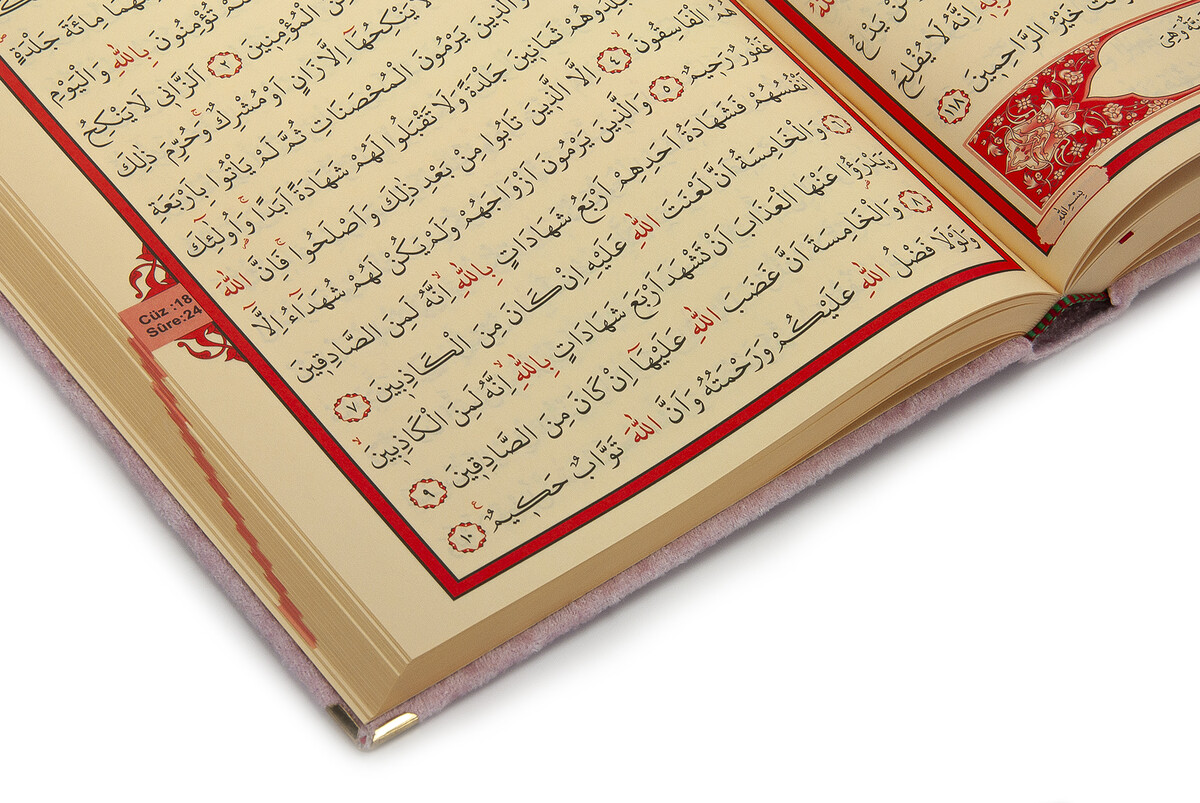 يَدْعُ
اِنَّهُ لَا يُفْلِحُ
خَيْرُ الرَّاحِمِينَ ﴿١١٨﴾
وَهِىَ
بِسْمِ اللّٰهِ
مِائَةَ جَلْدَةٍ
تُؤْمِنُونَ بِاللّٰهِ وَالْيَوْمِ
الْمُؤْمِنِينَ ﴿٢﴾ اَلزَّانِى لَا يَنْكِحُ
يَنْكِحُهَا اِلَّا زَانٍ اَوْ مُشْرِكٌ وَحُرِّمَ ذٰلِكَ
وَالَّذِينَ يَرْمُونَ الْمُحْصَنَاتِ ثُمَّ لَمْ يَاْتُوا بِاَرْبَعَةِ
ثَمَانِينَ جَلْدَةً وَلَا تَقْبَلُوا لَهُمْ شَهَادَةً اَبَدًا وَاُولٰٓئِكَ
الْفَاسِقُونَ ﴿٤﴾ اِلَّا الَّذِينَ تَابُوا مِنْ بَعْدِ ذٰلِكَ وَاَصْلَحُوا فَاِنَّ اللّٰهَ
غَفُورٌ رَحِيمٌ ﴿٥﴾ وَالَّذِينَ يَرْمُونَ اَزْوَاجَهُمْ وَلَمْ يَكُنْ لَهُمْ شُهَدَٓاءُ اِلَّٓا
اَنْفُسُهُمْ فَشَهَادَةُ اَحَدِهِمْ اَرْبَعُ شَهَادَاتٍ بِاللّٰهِ اِنَّهُ لَمِنَ الصَّادِقِينَ
﴿٦﴾ وَالْخَامِسَةُ اَنَّ لَعْنَتَ اللّٰهِ عَلَيْهِ اِنْ كَانَ مِنَ الْكَاذِبِينَ ﴿٧﴾
وَيَدْرَؤُا عَنْهَا الْعَذَابَ اَنْ تَشْهَدَ اَرْبَعَ شَهَادَاتٍ بِاللّٰهِ اِنَّهُ لَمِنَ الْكَاذِبِينَ
﴿٨﴾ وَالْخَامِسَةَ اَنَّ غَضَبَ اللّٰهِ عَلَيْهَٓا اِنْ كَانَ مِنَ الصَّادِقِينَ ﴿٩﴾
وَلَوْلَا فَضْلُ اللّٰهِ عَلَيْكُمْ وَرَحْمَتُهُ وَاَنَّ اللّٰهَ تَوَّابٌ حَكِيمٌ ﴿١٠﴾
Cüz :18
Sûre:24